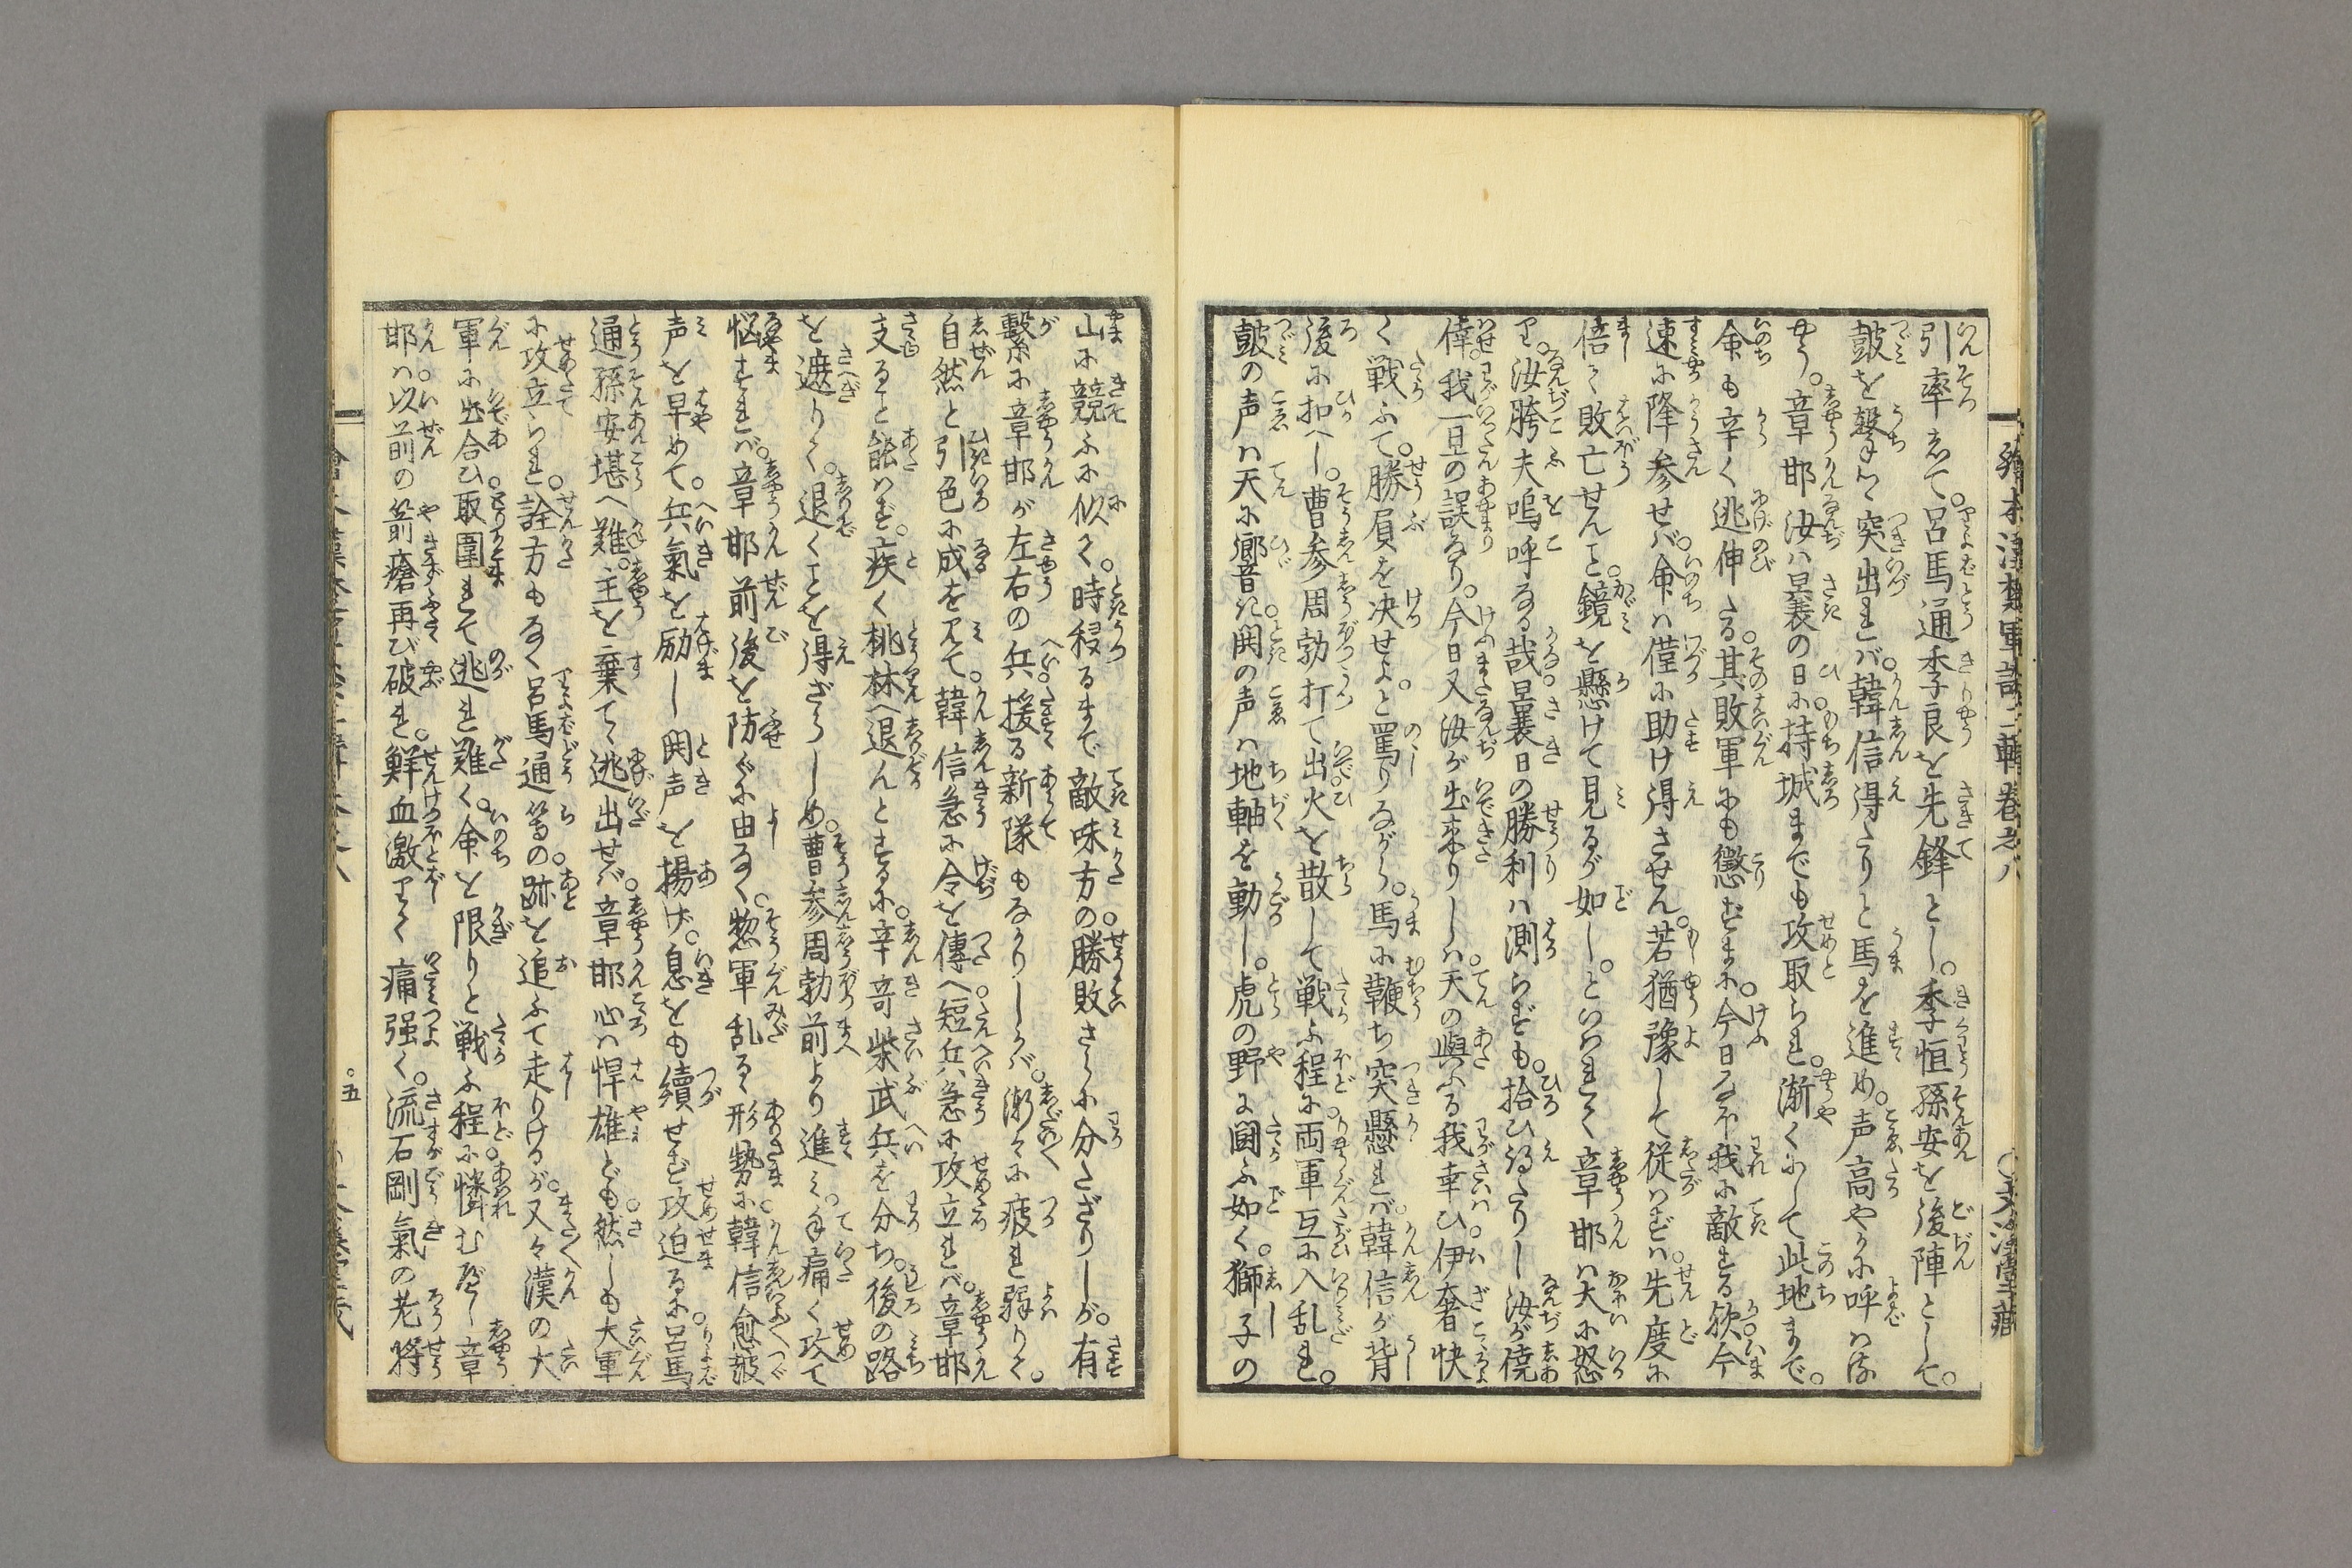 引率して。呂馬通季良を先鋒とし。季恒孫安を後陣として。
鼓を撃せ突出れバ。韓信得たりと馬を進め。声高やかに呼はり
やう。章邯汝ハ曩の日に。持城までも攻取られ。漸くにして此地まで。
命も辛く逃伸たる。其敗軍にも懲ずまに。今日又我に敵する歟今
速に降参せバ。命ハ僅に助け得させん。若猶豫して従はずハ。先度に
倍て敗亡せんと。鏡を懸けて見るが如し。といはれて章邯ハ大に怒
り。汝胯夫嗚呼なる哉。曩日の勝利ハ測らずも。拾ひ得たりし汝が僥
倖。我一旦の誤なり。今日又汝が出来りしハ。天の與ふる我幸ひ伊奢快
く戦ふて。勝負を决せよ。と罵りながら。馬に鞭ち突懸れバ。韓信が背
後に扣へし。曹参周勃打て出火を散して戦ふ程に。両軍互に入乱れ。
鼓の声ハ天に響き。鬨の声ハ地軸を動し。虎の野に闘ふ如く。獅子の
山に競ふに似て。時移るまで敵味方の。勝敗さらに分たざりしが。有
繋に章邯が左右の兵。援る新隊もなかりしかバ。漸々に疲れ弱りて。
自然と引色に成を見て。韓信急に令を傳へ。短兵急に攻立れバ。章邯
支ること能はず。疾く桃林へ退んとするに。辛奇柴武兵を分ち。後の路
を遮りて。退くことを得ざらしめ。曹参周勃前より進ミ。手痛く攻て
悩すれバ。章邯前後を防ぐに由なく。惣軍乱るゝ形勢に。韓信愈鼓
声を早めて。兵氣を励し鬨声を揚げ。息をも續せず攻迫るに。呂馬
通孫安堪へ難。主を棄てゝ逃出せバ。章邯心ハ悍雄ども。然しも大軍
に攻立られ。詮方もなく呂馬通等の。跡を追ふて走りけるが。又々漢の大
軍に出合ひ。取圍れて逃れ難く。命を限りと戦ふ程に。憐むべし章
邯ハ。以前の箭瘡再び破れ。鮮血激りて痛强く。流石剛氣の老将
繪本漢楚軍談二輯卷之八
文溪堂藏
五